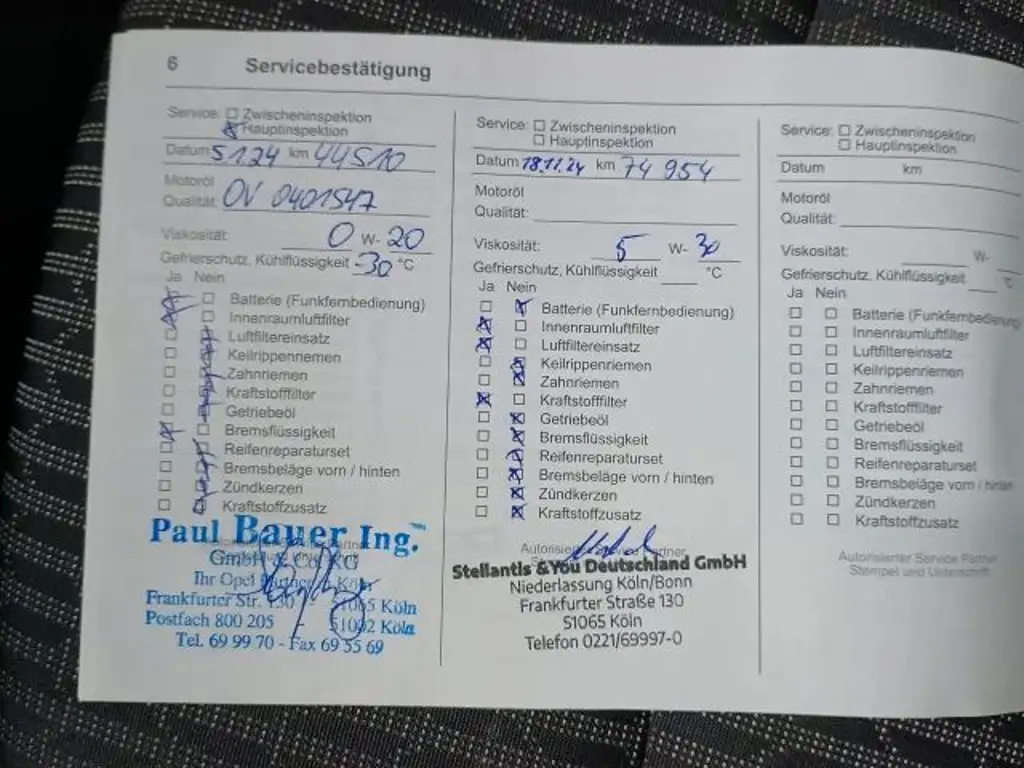 6 Servicebestätigung
Service: Zwischeninspektion
Hauptinspektion
Datum 5.1.24 km 44510
Motoröl
Qualität: OV 0401547
Viskosität: 0 W- 20
Gefrierschutz, Kühlflüssigkeit -30 °C
Ja Nein
Batterie (Funkfernbedienung)
Innenraumluftfilter
Luftfiltereinsatz
Keilrippenriemen
Zahnriemen
Kraftstofffilter
Getriebeöl
Bremsflüssigkeit
Reifenreparaturset
Bremsbeläge vorn / hinten
Zündkerzen
Kraftstoffzusatz
Paul Bauer Ing.
GmbH & Co. KG
Ihr Opel Partner in Köln
Frankfurter Str. 130 - 51065 Köln
Postfach 800 205 51002 Köln
Tel. 69 99 70 - Fax 69 55 69
Service: Zwischeninspektion
Hauptinspektion
Datum 18.11.24 km 74 954
Motoröl
Qualität:
Viskosität: 5 W- 30
Gefrierschutz, Kühlflüssigkeit °C
Ja Nein
Batterie (Funkfernbedienung)
Innenraumluftfilter
Luftfiltereinsatz
Keilrippenriemen
Zahnriemen
Kraftstofffilter
Getriebeöl
Bremsflüssigkeit
Reifenreparaturset
Bremsbeläge vorn / hinten
Zündkerzen
Kraftstoffzusatz
Autorisierter Service Partner
Stellantis &You Deutschland GmbH
Niederlassung Köln/Bonn
Frankfurter Straße 130
51065 Köln
Telefon 0221/69997-0
Service: Zwischeninspektion
Hauptinspektion
Datum km
Motoröl
Qualität:
Viskosität: W-
Gefrierschutz, Kühlflüssigkeit °C
Ja Nein
Batterie (Funkfernbedienung
Innenraumluftfilter
Luftfiltereinsatz
Keilrippenriemen
Zahnriemen
Kraftstofffilter
Getriebeöl
Bremsflüssigkeit
Reifenreparaturset
Bremsbeläge vorn / hinten
Zündkerzen
Kraftstoffzusatz
Autorisierter Service Partner
Stempel und Unterschrift